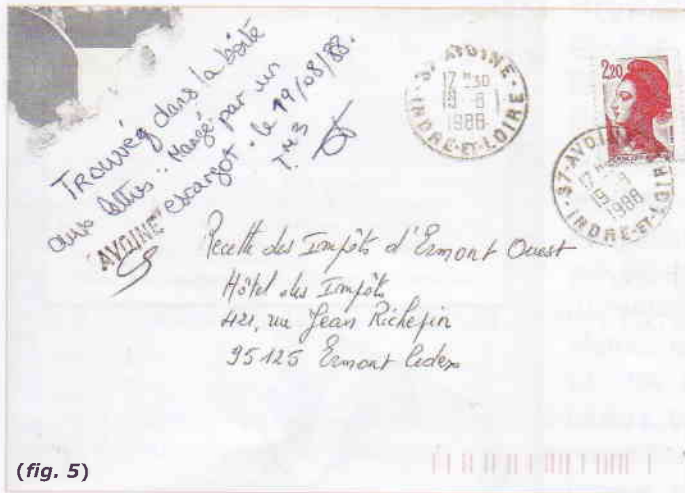 Trouvéq dans la boîte
aux lettres.. Mangé par un
escargot. le 19/08/88.
AVOINE
37 AVOINE
17 H 30
19-8
1988
INDRE-ET-LOIRE
2,20
37-AVOINE
17 H
19-8
1988
INDRE-ET-LOIRE
Recette des Impôts d'Ermont Ouest
Hôtel des Impôts
421, rue Jean Richepin
95125 Ermont Cedex
(fig. 5)